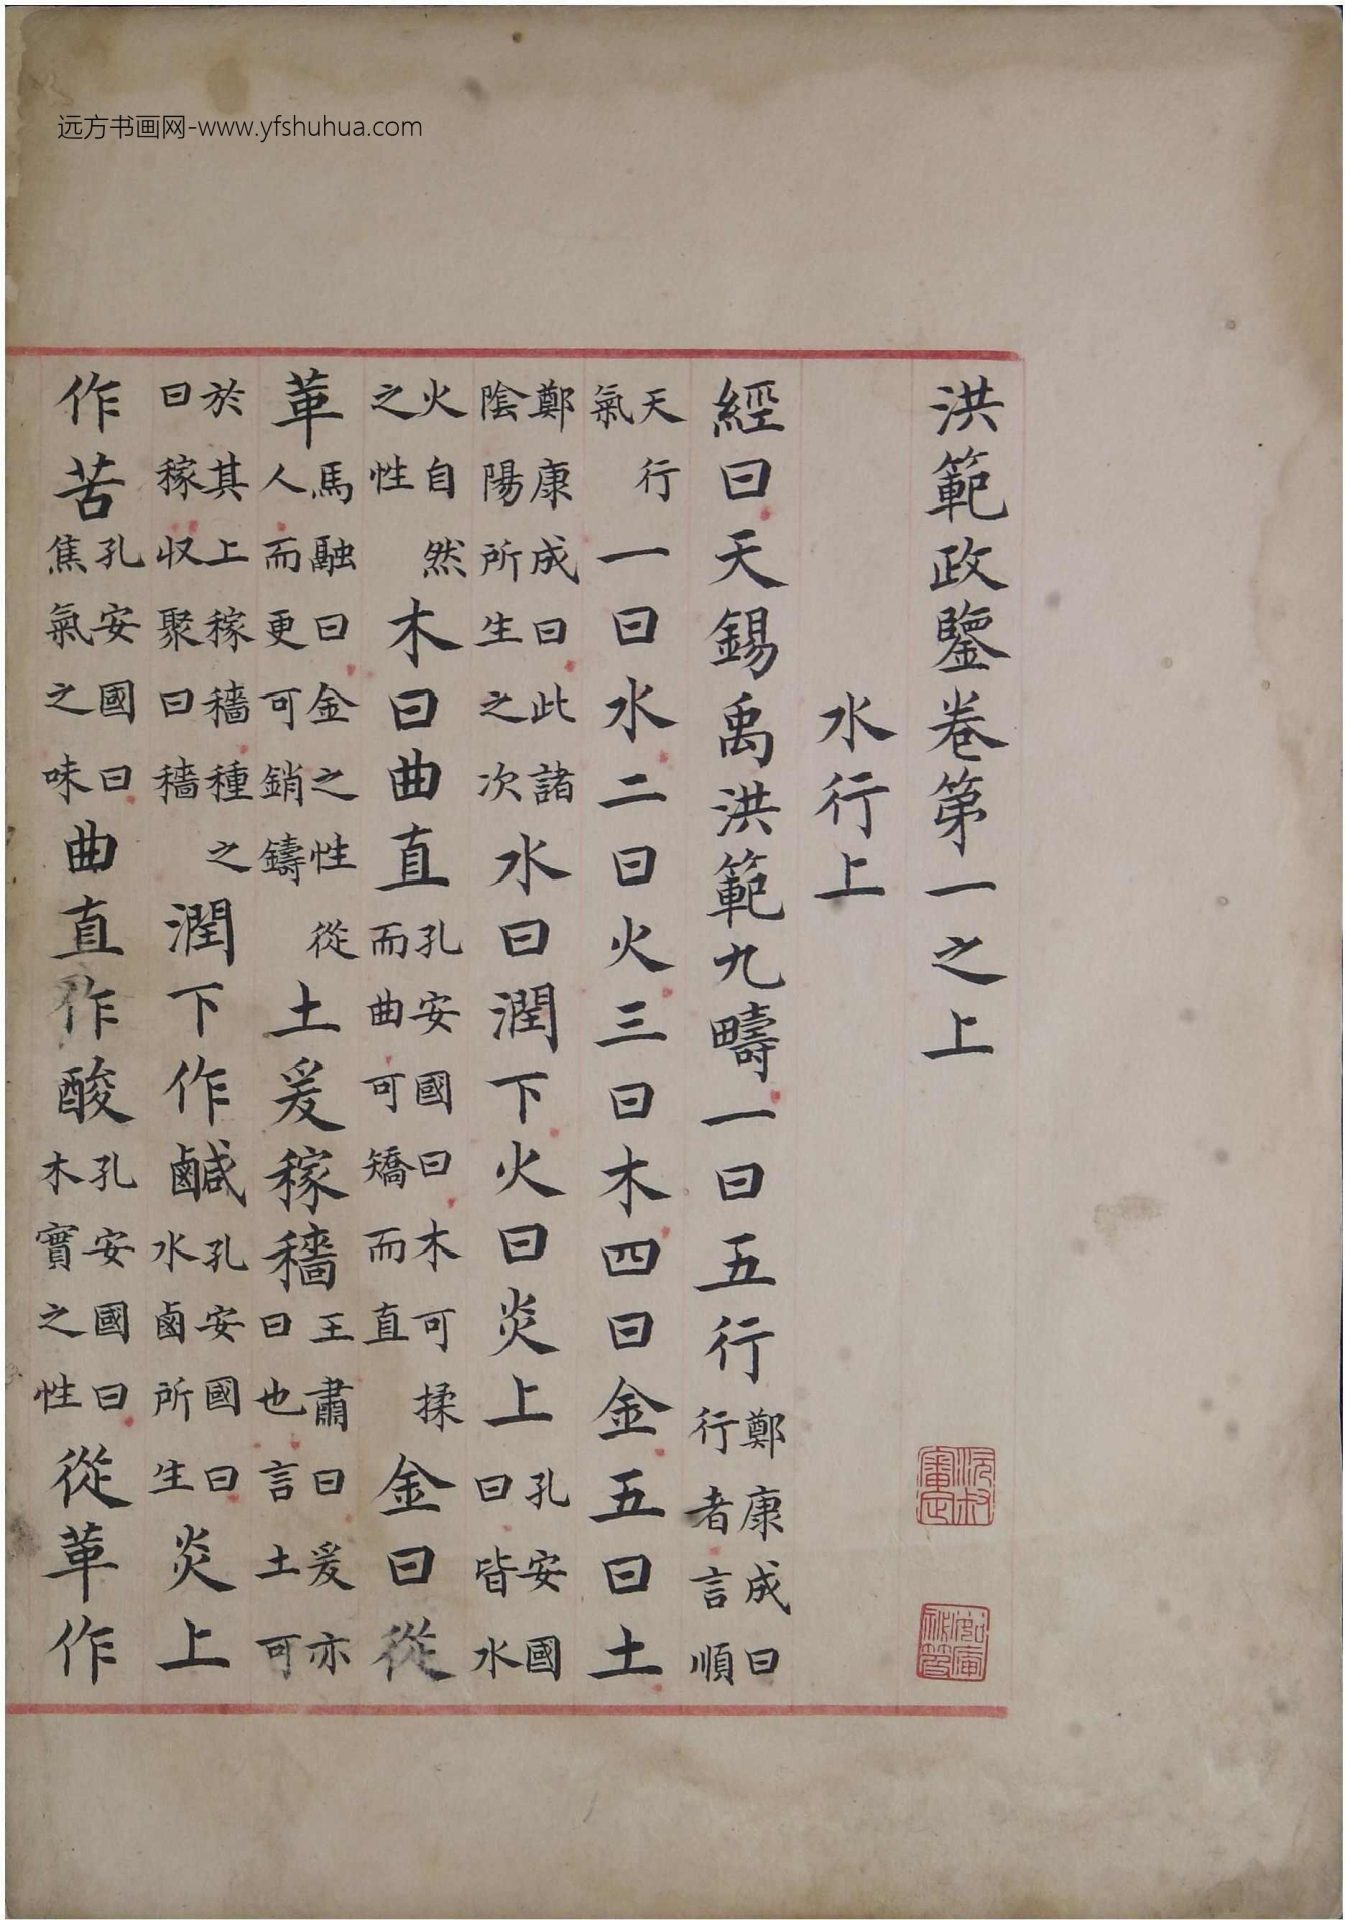 远方书画网-www.yfshuhua.com
洪範政鑒卷第一之上
水行上
經曰天錫禹洪範九疇一曰五行鄭康成曰行者言順
天行氣一曰水二曰火三曰木四曰金五曰土
鄭康成曰此諸陰陽所生之次水曰潤下火曰炎上孔安國曰皆水
火自然之性木曰曲直孔安國曰木可揉而曲可矯而直金曰從
革馬融曰金之性從人而更可銷鑄土爰稼穡王肅曰爰亦曰也言土可
於其上稼穡種之曰稼収聚曰穡潤下作鹹孔安國曰水鹵所生炎上
作苦孔安國曰焦氣之味曲直作酸孔安國曰木實之性從革作
沅叔審定